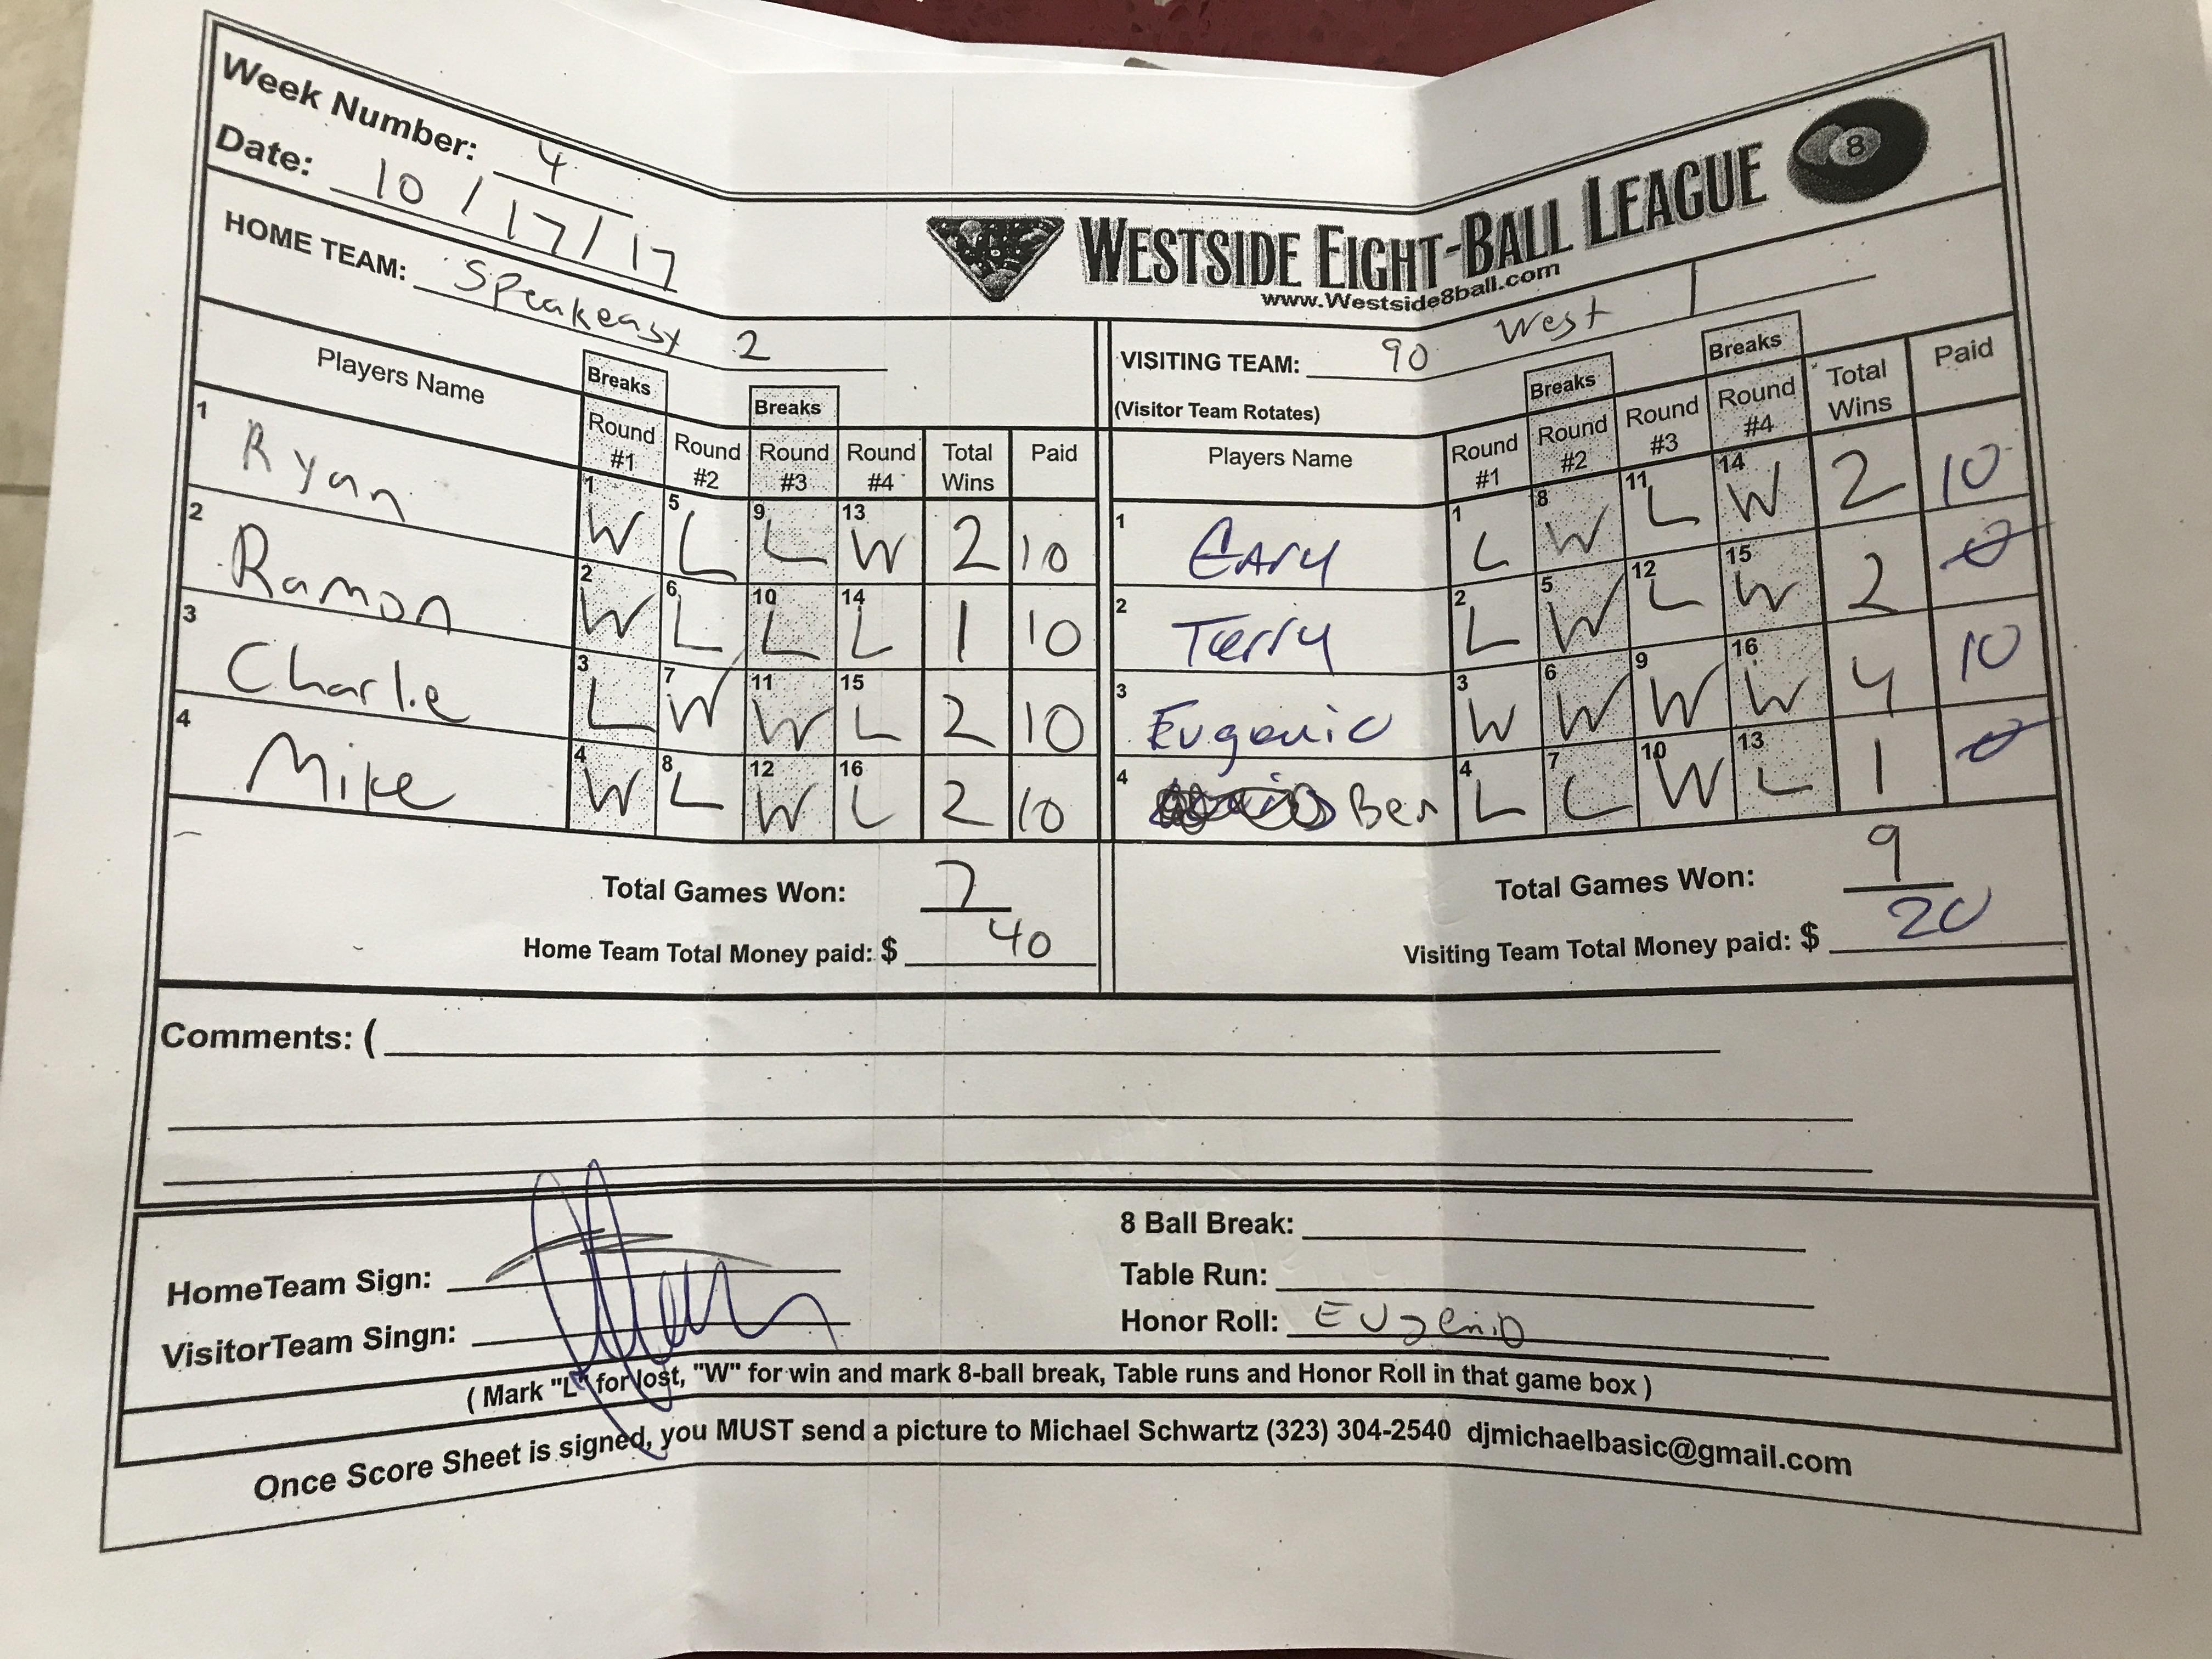 Week Number: 4
Date: 10 / 17 / 17
WESTSIDE EIGHT-BALL LEAGUE 8
www.Westside8ball.com
HOME TEAM: Speakeasy 2
VISITING TEAM: 90 West 1
(Visitor Team Rotates)
Breaks Breaks
Players Name Round #1 Round #2 Round #3 Round #4 Total Wins Paid
1 Ryan 1 W 5 L 9 L 13 W 2 10
2 Ramon 2 W 6 L 10 L 14 L 1 10
3 Charlie 3 L 7 W 11 W 15 L 2 10
4 Mike 4 W 8 L 12 W 16 L 2 10
Total Games Won: 7
Home Team Total Money paid: $ 40
Breaks Breaks
Players Name Round #1 Round #2 Round #3 Round #4 Total Wins Paid
1 1 L 8 W 11 L 14 W 2 10
2 Terry 2 L 5 W 12 L 15 W 2 0
3 Eugenio 3 W 6 W 9 W 16 W 4 10
4 Ben 4 L 7 L 10 W 13 L 1 0
Total Games Won: 9
Visiting Team Total Money paid: $ 20
Comments: (
HomeTeam Sign:
VisitorTeam Singn:
8 Ball Break:
Table Run:
Honor Roll: Eugenio
( Mark "L" for lost, "W" for win and mark 8-ball break, Table runs and Honor Roll in that game box )
Once Score Sheet is signed, you MUST send a picture to Michael Schwartz (323) 304-2540 djmichaelbasic@gmail.com